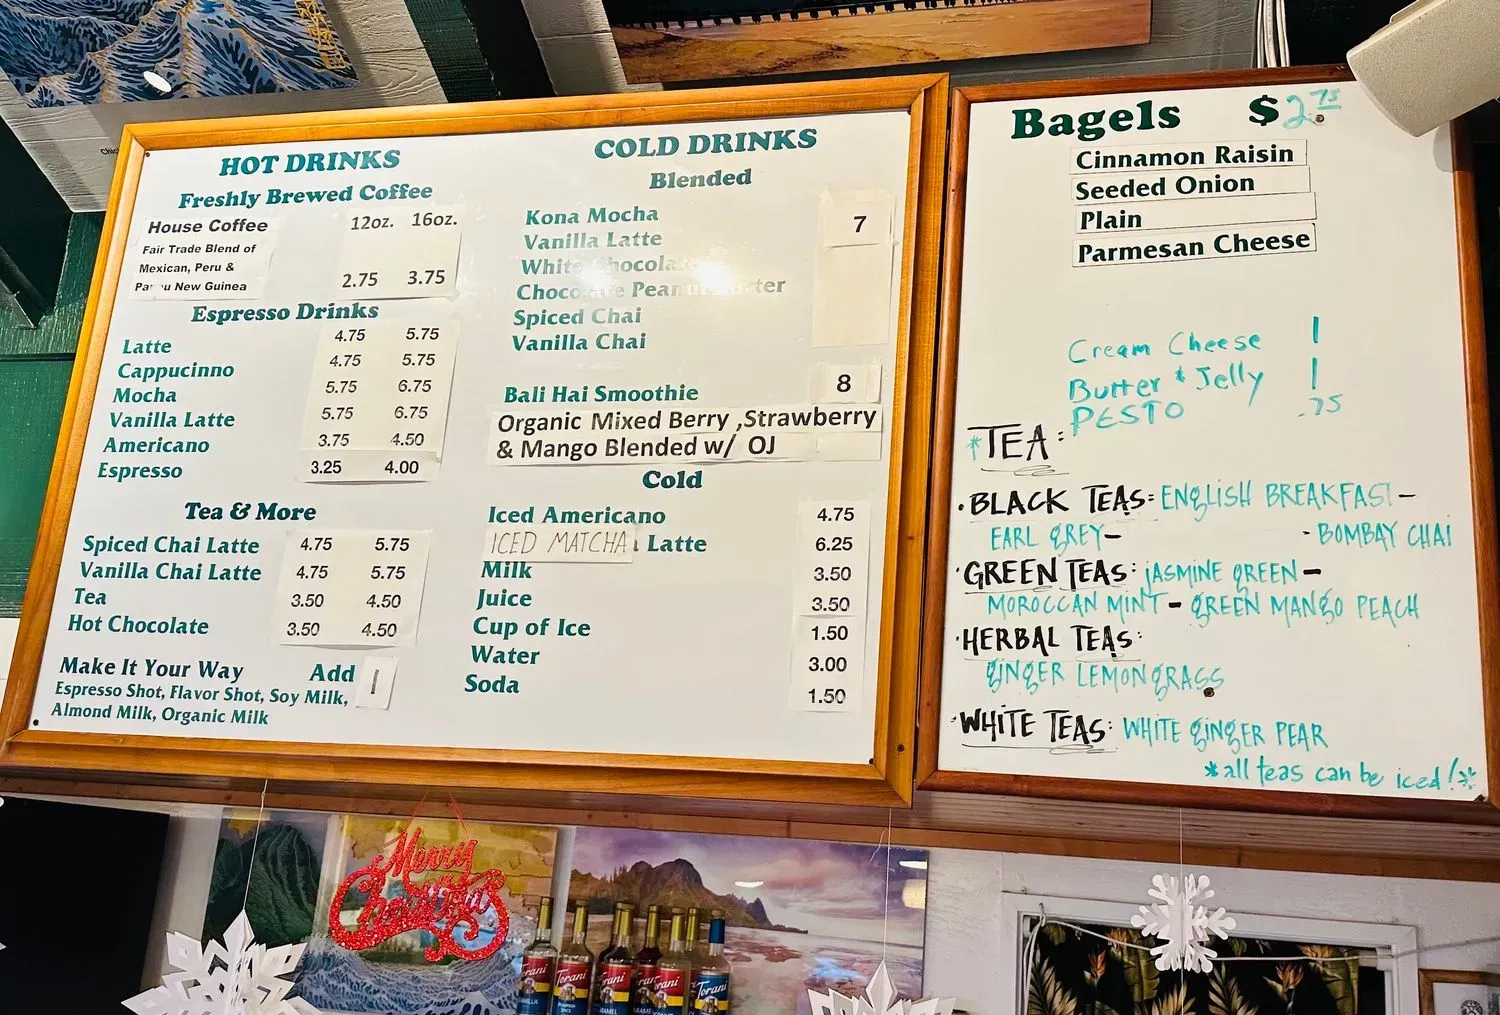 HOT DRINKS
Freshly Brewed Coffee
House Coffee 12oz. 16oz.
Fair Trade Blend of
Mexican, Peru &
New Guinea 2.75 3.75
Espresso Drinks
Latte 4.75 5.75
Cappucinno 4.75 5.75
Mocha 5.75 6.75
Vanilla Latte 5.75 6.75
Americano 3.75 4.50
Espresso 3.25 4.00
Tea & More
Spiced Chai Latte 4.75 5.75
Vanilla Chai Latte 4.75 5.75
Tea 3.50 4.50
Hot Chocolate 3.50 4.50
Make It Your Way Add 1
Espresso Shot, Flavor Shot, Soy Milk,
Almond Milk, Organic Milk
COLD DRINKS
Blended
Kona Mocha 7
Vanilla Latte
White Chocolate
Chocolate Peanut Butter
Spiced Chai
Vanilla Chai
Bali Hai Smoothie 8
Organic Mixed Berry ,Strawberry
& Mango Blended w/ OJ
Cold
Iced Americano 4.75
ICED MATCHA Latte 6.25
Milk 3.50
Juice 3.50
Cup of Ice 1.50
Water 3.00
Soda 1.50
Bagels $2.75
Cinnamon Raisin
Seeded Onion
Plain
Parmesan Cheese
Cream Cheese 1
Butter & Jelly 1
PESTO .75
*TEA:
·BLACK TEAS: ENGLISH BREAKFAST –
EARL GREY – - BOMBAY CHAI
·GREEN TEAS: JASMINE GREEN –
MOROCCAN MINT – GREEN MANGO PEACH
·HERBAL TEAS:
GINGER LEMONGRASS
·WHITE TEAS: WHITE GINGER PEAR
*all teas can be iced!*
Merry
Christmas
Torani
VANILLA
Torani
PUMPKIN
SPICE
Torani
Torani
Torani
Torani